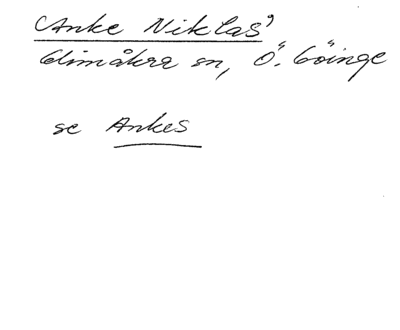 Anke Niklas'
Glimåkra sn, Ö. Göinge
se Ankes